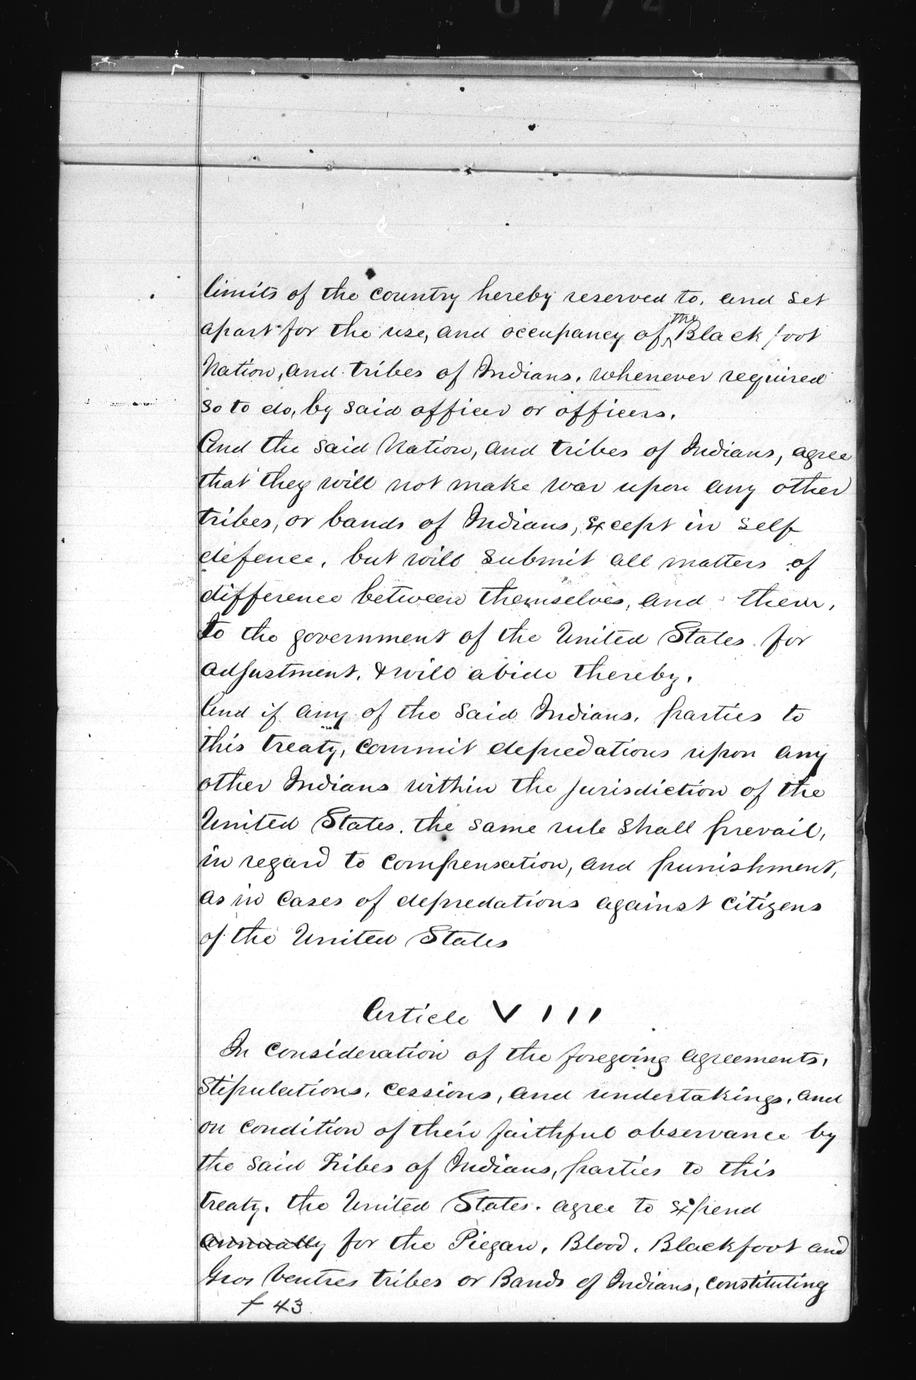 limits of the country hereby reserved to, and set
apart for the use, and occupancy of the Blackfoot
Nation, and tribes of Indians, whenever required
so to do, by said officer or officers.
And the said Nation, and tribes of Indians, agree
that they will not make war upon any other
tribes, or bands of Indians, except in self
defence, but will submit all matters of
difference between themselves, and them,
to the government of the United States for
adjustment, & will abide thereby.
And if any of the said Indians, parties to
this treaty, commit depredations upon any
other Indians within the jurisdiction of the
United States, the same rule shall prevail,
in regard to compensation, and punishment,
as in cases of depredations against citizens
of the United States
Article VIII
In consideration of the foregoing agreements,
stipulations, cessions, and undertakings, and
on condition of their faithful observance by
the said tribes of Indians, parties to this
treaty, the United States, agree to expend
annually for the Piegan, Blood, Blackfoot and
Gros Ventres tribes or Bands of Indians, constituting
f 43